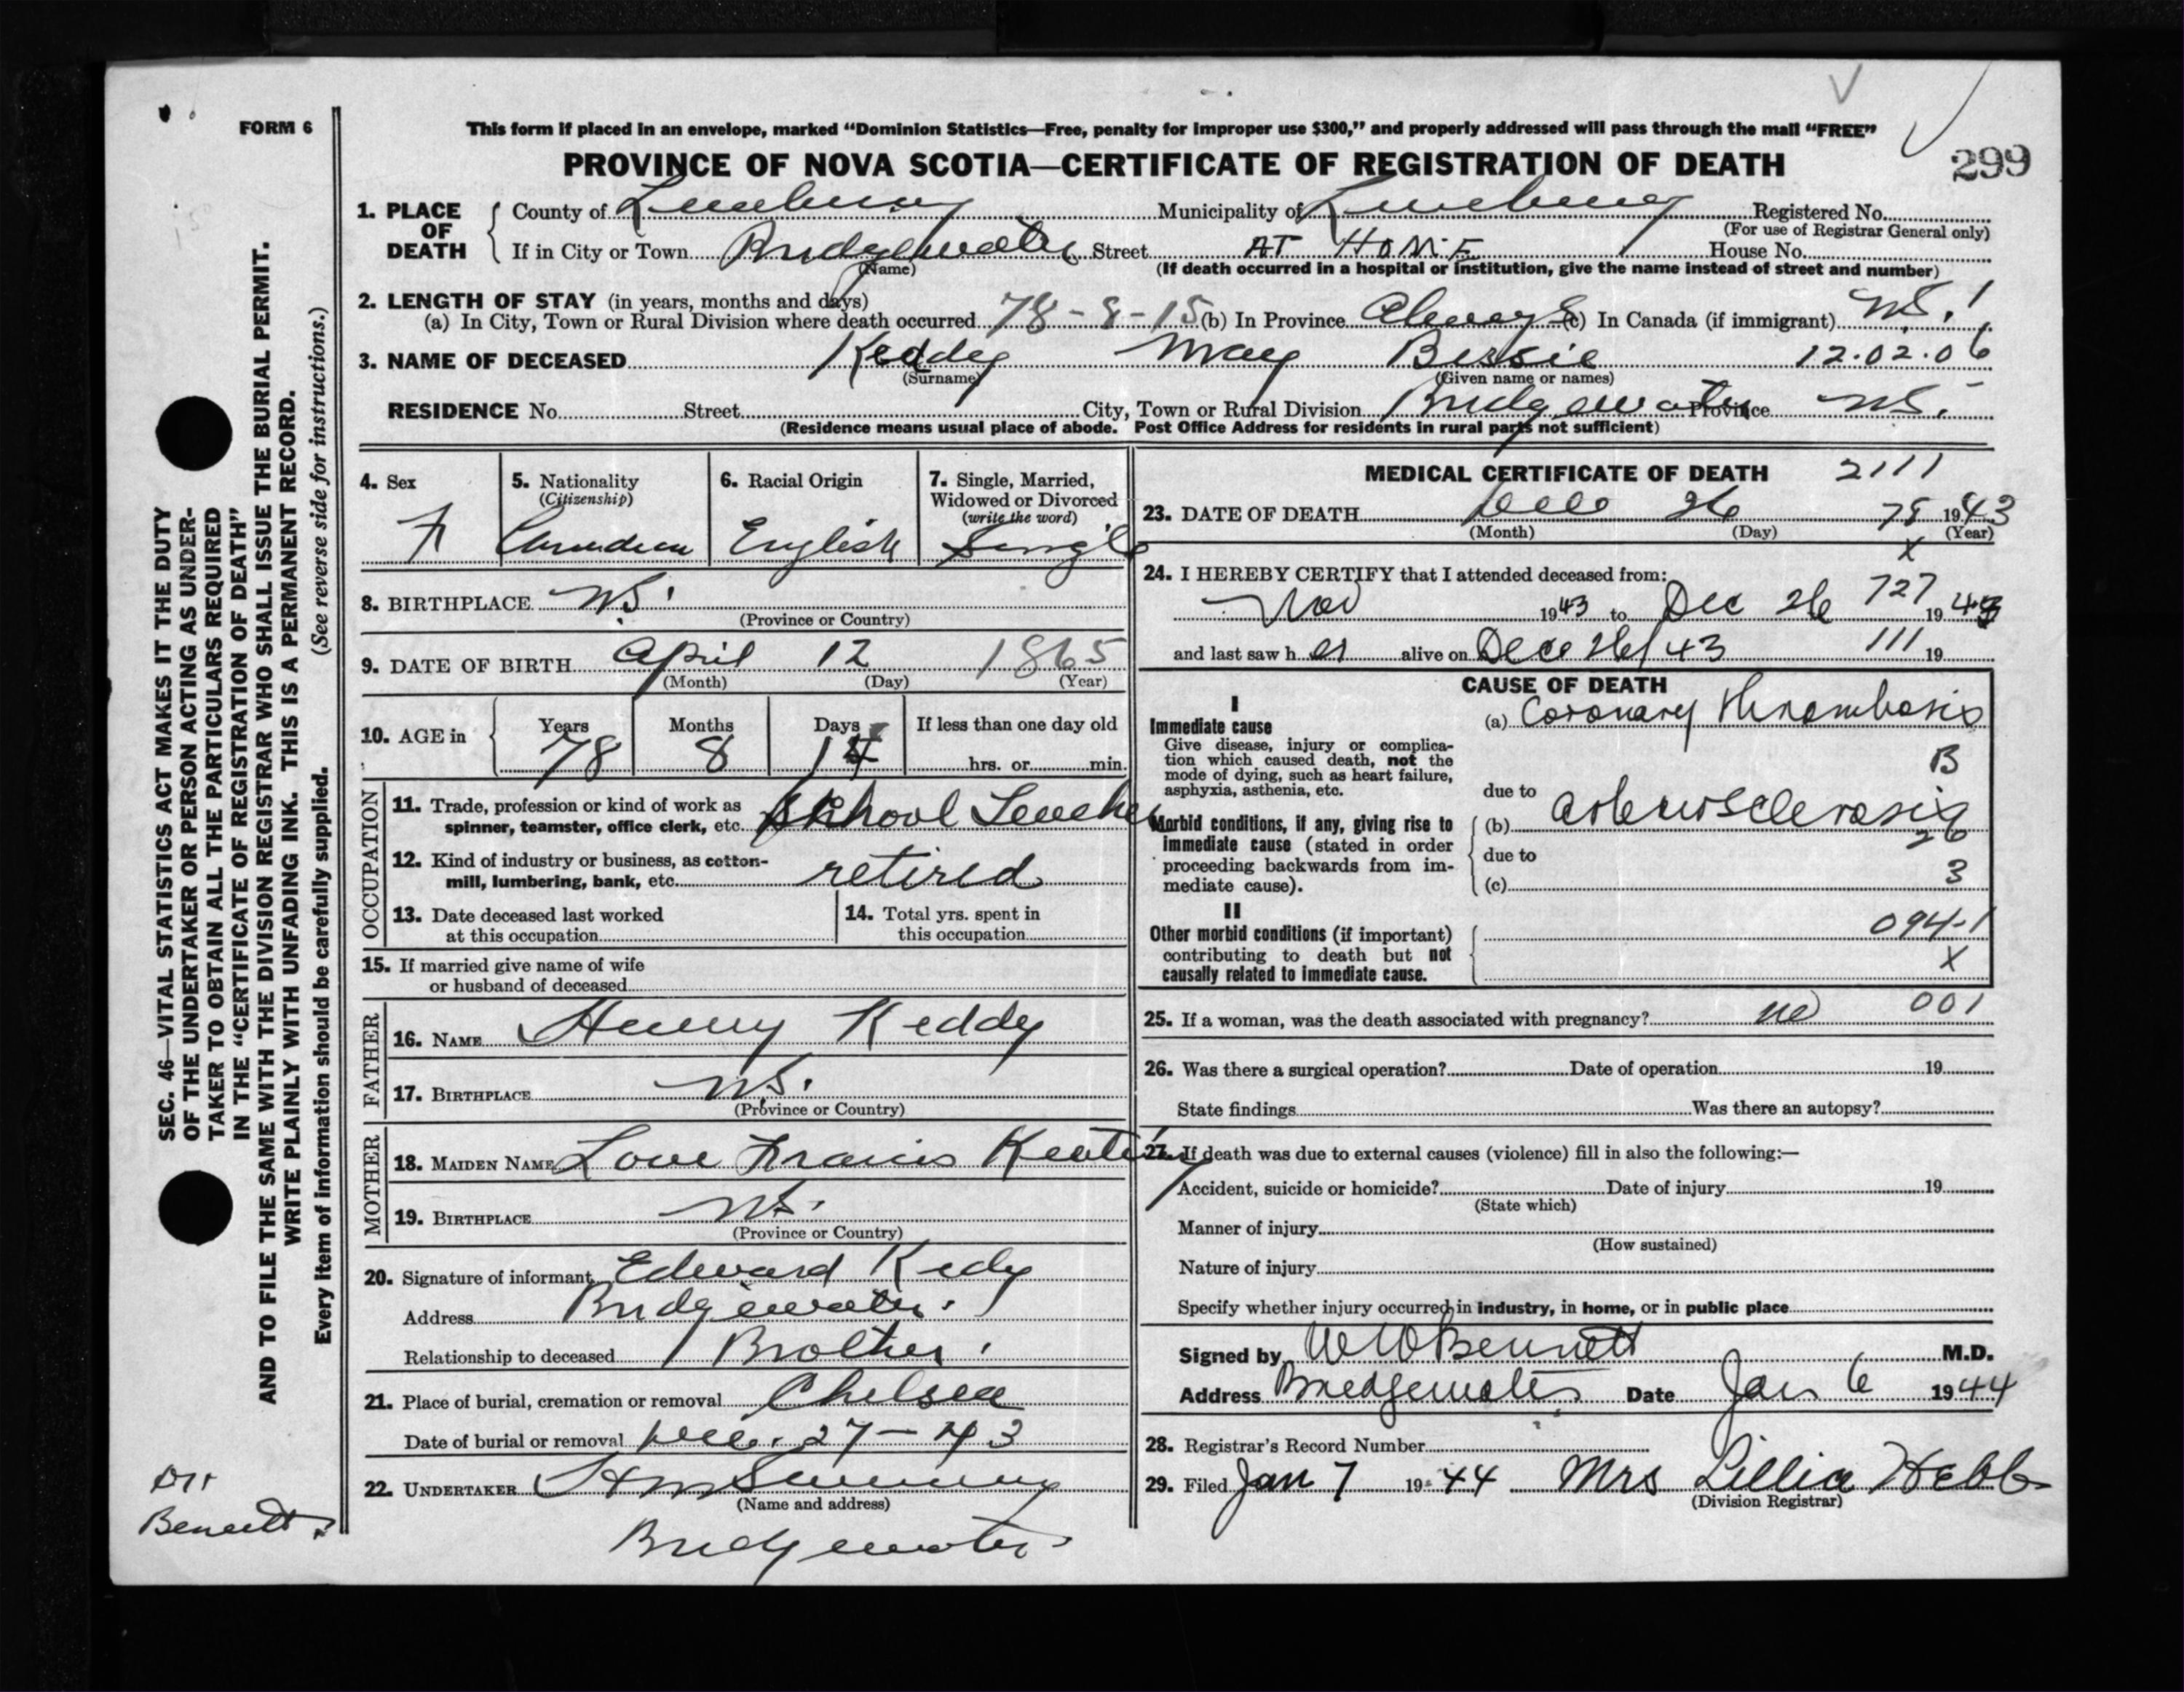 FORM 6
This form if placed in an envelope, marked “Dominion Statistics—Free, penalty for improper use $300,” and properly addressed will pass through the mail “FREE”
PROVINCE OF NOVA SCOTIA—CERTIFICATE OF REGISTRATION OF DEATH
299
1. PLACE OF DEATH
County of Lunenburg Municipality of Lunenburg Registered No.
(For use of Registrar General only)
If in City or Town Bridgewater Street AT HOME House No.
(Name) (If death occurred in a hospital or institution, give the name instead of street and number)
2. LENGTH OF STAY (in years, months and days)
(a) In City, Town or Rural Division where death occurred 78-8-15 (b) In Province Always (c) In Canada (if immigrant) N.S.
3. NAME OF DECEASED Keddy May Bessie 12.02.06
(Surname) (Given name or names)
RESIDENCE No. Street City, Town or Rural Division Bridgewater Province N.S.
(Residence means usual place of abode. Post Office Address for residents in rural parts not sufficient)
4. Sex F
5. Nationality (Citizenship) Canadian
6. Racial Origin English
7. Single, Married, Widowed or Divorced (write the word) Single
8. BIRTHPLACE N.S.
(Province or Country)
9. DATE OF BIRTH April 12 1865
(Month) (Day) (Year)
10. AGE in Years Months Days If less than one day old
78 8 14 hrs. or min.
OCCUPATION
11. Trade, profession or kind of work as School Teacher
spinner, teamster, office clerk, etc.
12. Kind of industry or business, as cotton-
mill, lumbering, bank, etc. retired
13. Date deceased last worked
at this occupation
14. Total yrs. spent in
this occupation
15. If married give name of wife
or husband of deceased
FATHER
16. NAME Henry Keddy
17. BIRTHPLACE N.S.
(Province or Country)
MOTHER
18. MAIDEN NAME Love Francis Keating
19. BIRTHPLACE N.S.
(Province or Country)
20. Signature of informant Edward Kedy
Address Bridgewater.
Relationship to deceased Brother.
21. Place of burial, cremation or removal Chelsea
Date of burial or removal Dec. 27-43
22. UNDERTAKER
(Name and address)
Bridgewater
MEDICAL CERTIFICATE OF DEATH 2111
23. DATE OF DEATH Dec 26 78 1943
(Month) (Day) (Year)
X
24. I HEREBY CERTIFY that I attended deceased from:
Nov 1943 to Dec 26 727 1943
and last saw her alive on Dec 26/43 111 19
CAUSE OF DEATH
I
Immediate cause (a) Coronary thrombosis
Give disease, injury or complica-
tion which caused death, not the
mode of dying, such as heart failure,
asphyxia, asthenia, etc.
B
due to
Morbid conditions, if any, giving rise to
immediate cause (stated in order
proceeding backwards from im-
mediate cause).
(b) arteriosclerosis
26
due to
(c) 3
II
Other morbid conditions (if important)
contributing to death but not
causally related to immediate cause.
094-1
X
25. If a woman, was the death associated with pregnancy? no 001
26. Was there a surgical operation? Date of operation 19
State findings Was there an autopsy?
27. If death was due to external causes (violence) fill in also the following:—
Accident, suicide or homicide? Date of injury 19
(State which)
Manner of injury
(How sustained)
Nature of injury
Specify whether injury occurred in industry, in home, or in public place
Signed by W W Bennett M.D.
Address Bridgewater Date Jan 6 1944
28. Registrar's Record Number
29. Filed Jan 7 1944 Mrs Lillia Hebb
(Division Registrar)
SEC. 46—VITAL STATISTICS ACT MAKES IT THE DUTY
OF THE UNDERTAKER OR PERSON ACTING AS UNDER-
TAKER TO OBTAIN ALL THE PARTICULARS REQUIRED
IN THE “CERTIFICATE OF REGISTRATION OF DEATH”
AND TO FILE THE SAME WITH THE DIVISION REGISTRAR WHO SHALL ISSUE THE BURIAL PERMIT.
WRITE PLAINLY WITH UNFADING INK. THIS IS A PERMANENT RECORD.
Every item of information should be carefully supplied. (See reverse side for instructions.)
Dr
Bennett